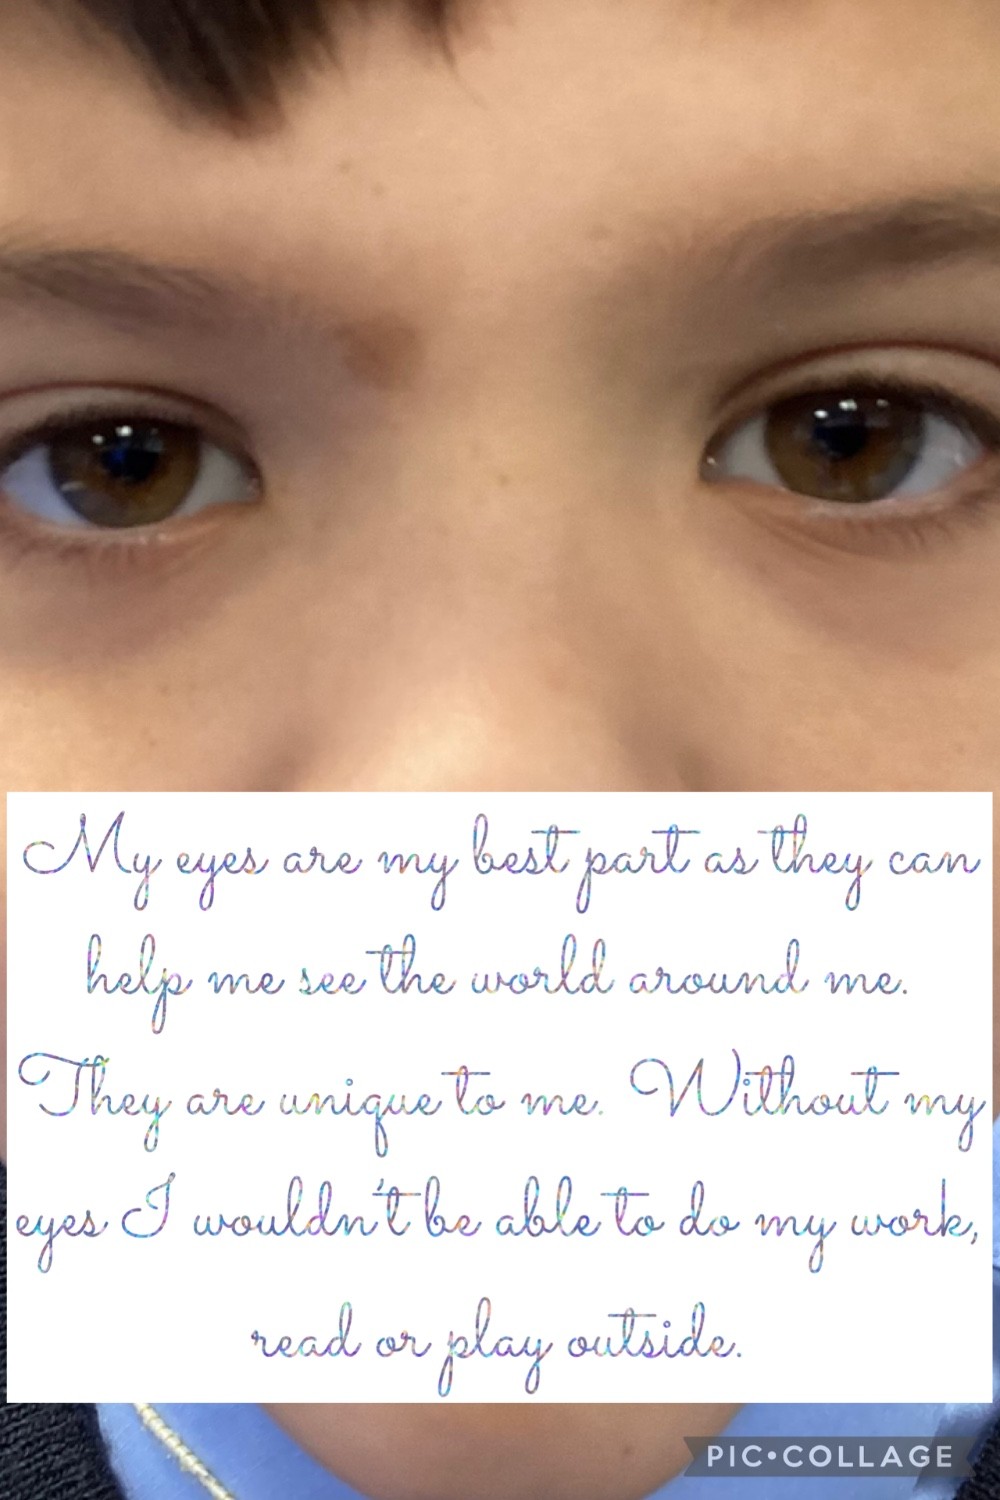 My eyes are my best part as they can
help me see the world around me.
They are unique to me. Without my
eyes I wouldn't be able to do my work,
read or play outside.
PIC•COLLAGE